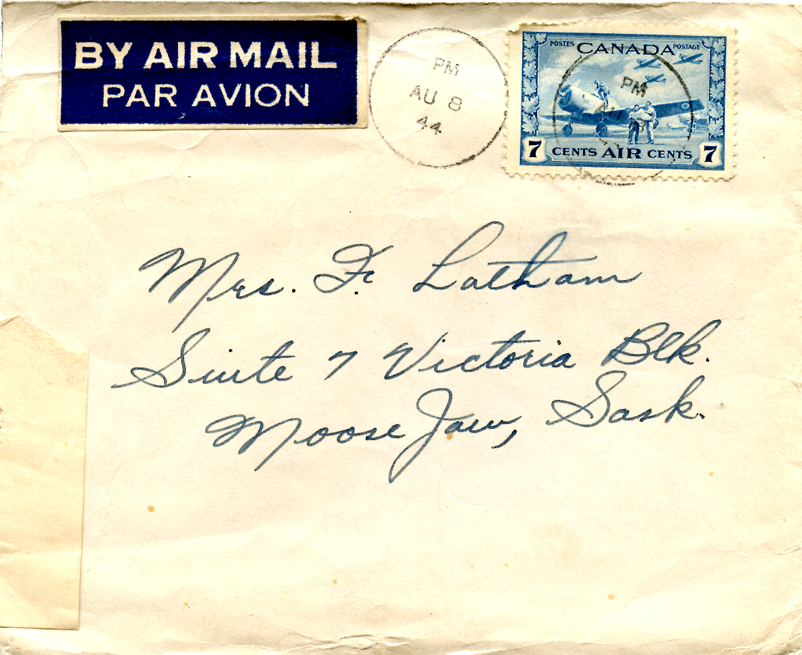 BY AIR MAIL
PAR AVION
PM
AU 8
44
POSTES CANADA POSTAGE
PM
7 CENTS AIR CENTS 7
Mrs. F. Latham
Suite 7 Victoria Blk.
Moose Jaw, Sask.